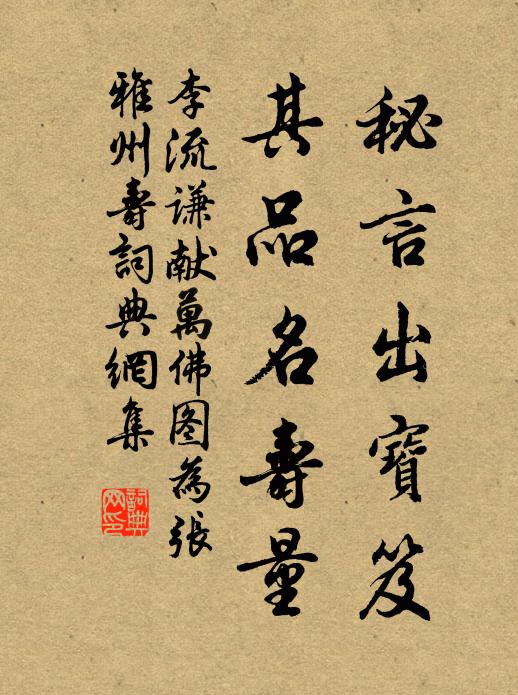 秘言出寶笈
其品名壽量
李流謙献萬佛图為張
雅州壽詞典網集
詞典网印